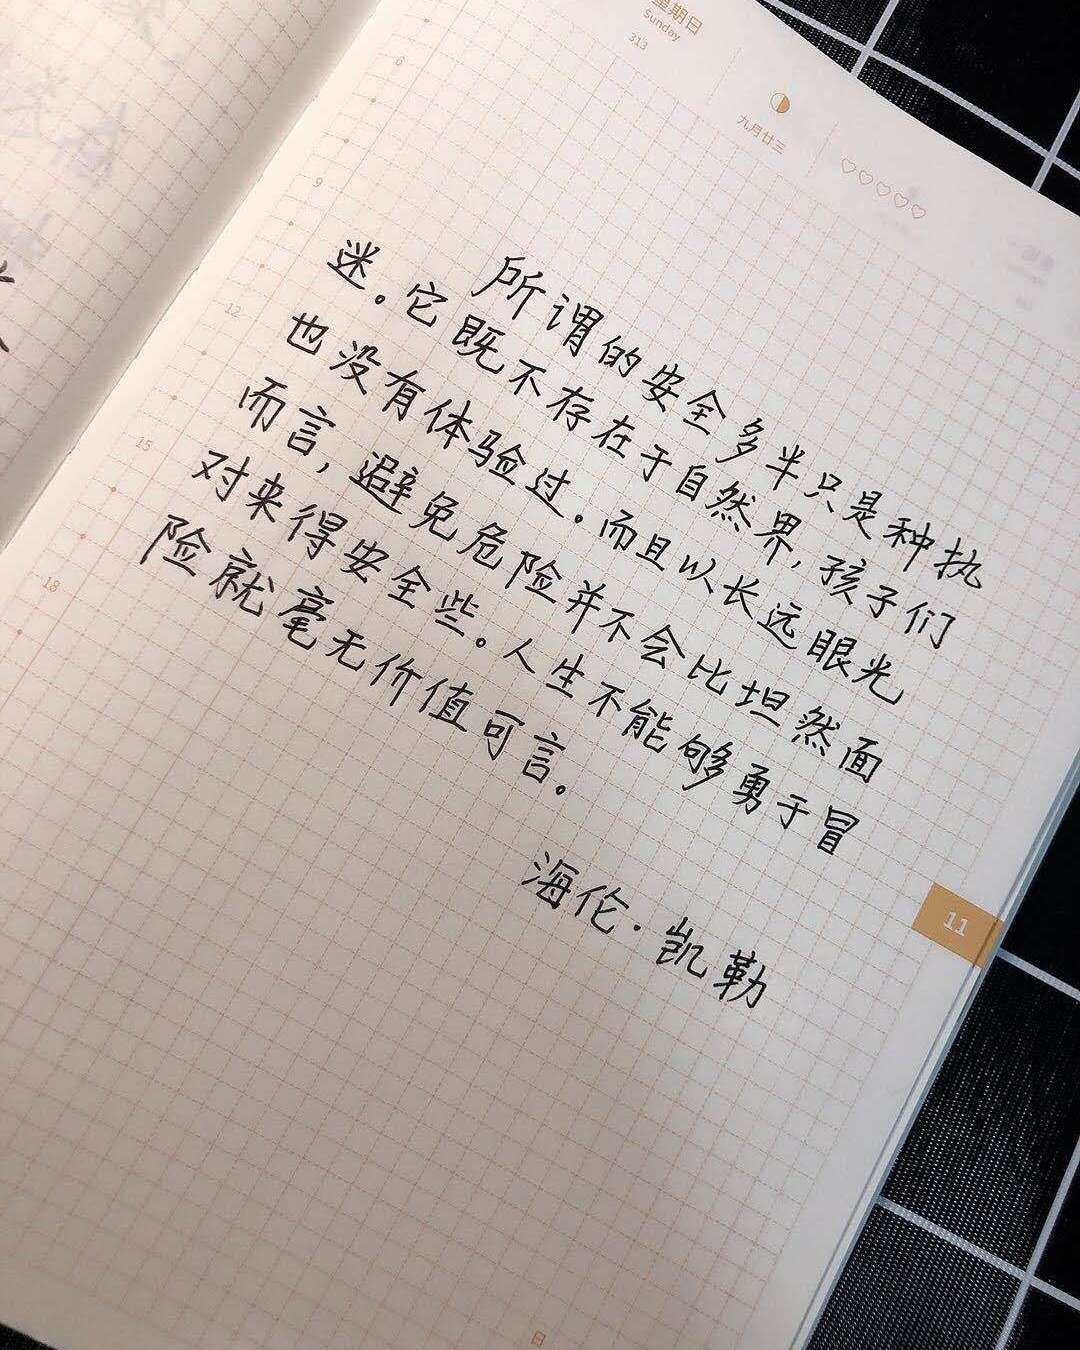 星期日
Sunday
313
九月廿三
6
9
12
15
18
所谓的安全多半只是种执
迷。它既不存在于自然界,孩子们
也没有体验过。而且以长远眼光
而言,避免危险并不会比坦然面
对来得安全些。人生不能够勇于冒
险就毫无价值可言。
海伦·凯勒
11
日